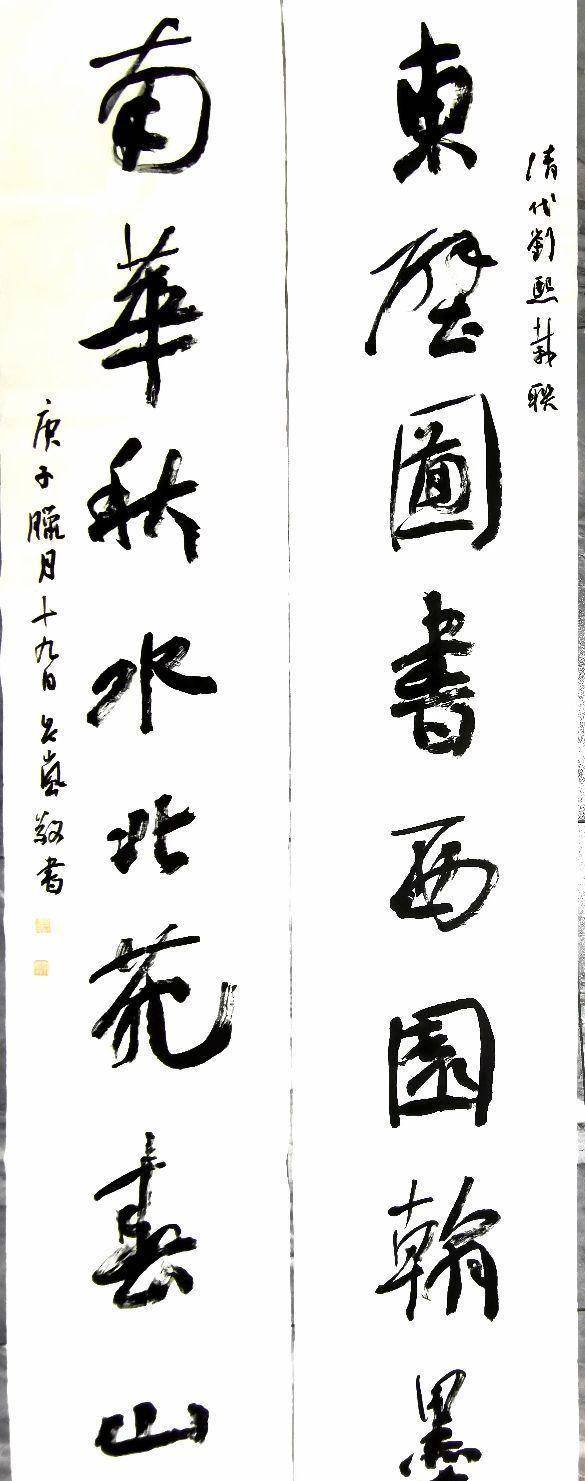 清代劉熙載聯
東壁圖書西園翰墨
南華秋水北苑春山
庚子臘月十九日 嵐敬書